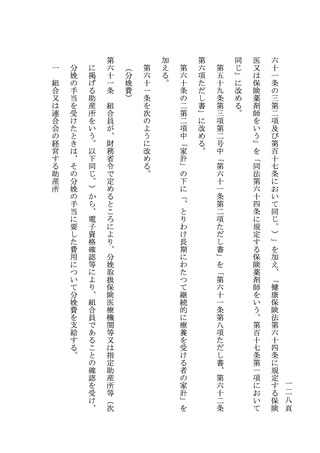 一二八頁
六十一条の三第二項及び第百十七条において同じ。）」を加え、「健康保険法第六十四条に規定する保険
医又は保険薬剤師をいう」を「同法第六十四条に規定する保険薬剤師をいう。第百十七条第一項において
同じ」に改める。
第五十九条第三項第二号中「第六十一条第二項ただし書」を「第六十一条第八項ただし書、第六十二条
第六項ただし書」に改める。
第六十条の二第二項中「家計」の下に「、とりわけ長期にわたつて継続的に療養を受ける者の家計」を
加える。
第六十一条を次のように改める。
（分娩費）
第六十一条　組合員が、財務省令で定めるところにより、分娩取扱保険医療機関等又は指定助産所等（次
に掲げる助産所をいう。以下同じ。）から、電子資格確認等により、組合員であることの確認を受け、
分娩の手当を受けたときは、その分娩の手当に要した費用について分娩費を支給する。
一　組合又は連合会の経営する助産所